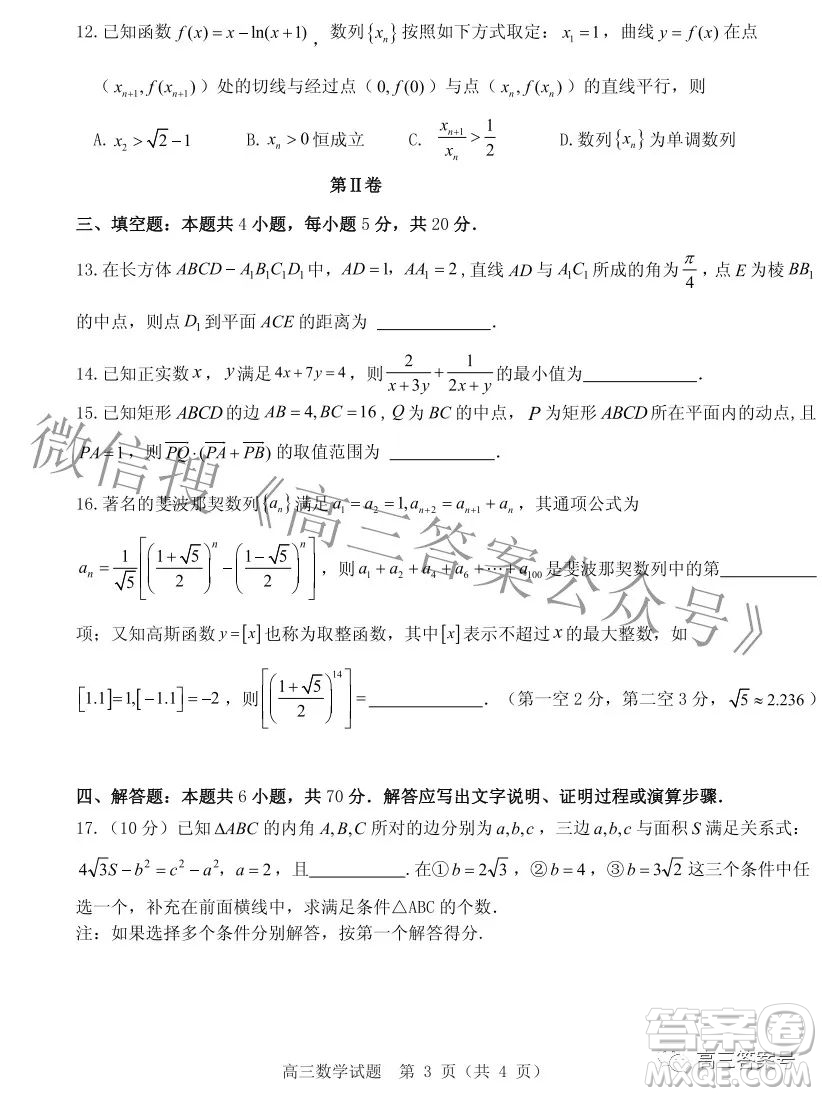 12.已知函数 f(x)=x−ln(x+1)，数列{xₙ}按照如下方式取定：x₁=1，曲线 y=f(x) 在点
（xₙ₊₁,f(xₙ₊₁)）处的切线与经过点（0,f(0)）与点（xₙ,f(xₙ)）的直线平行，则
A. x₂>√2−1 B. xₙ>0恒成立 C. xₙ₊₁/xₙ>1/2 D.数列{xₙ}为单调数列
第Ⅱ卷
三、填空题：本题共 4 小题，每小题 5 分，共 20 分．
13.在长方体 ABCD−A₁B₁C₁D₁中，AD=1，AA₁=2,直线 AD 与 A₁C₁所成的角为π/4，点 E 为棱 BB₁
的中点，则点 D₁到平面 ACE 的距离为 ____________．
14.已知正实数 x，y满足 4x+7y=4，则 2/(x+3y)+1/(2x+y)的最小值为____________．
15.已知矩形 ABCD的边 AB=4,BC=16,Q为 BC的中点，P 为矩形 ABCD所在平面内的动点,且
PA=1，则 P͞Q·(P͞A+P͞B)的取值范围为 ____________．
16.著名的斐波那契数列{aₙ}满足 a₁=a₂=1,aₙ₊₂=aₙ₊₁+aₙ，其通项公式为
aₙ=1/√5[((1+√5)/2)ⁿ−((1−√5)/2)ⁿ]，则 a₁+a₂+a₄+a₆+⋯+a₁₀₀是斐波那契数列中的第____________
项；又知高斯函数 y=[x]也称为取整函数，其中[x]表示不超过 x的最大整数，如
[1.1]=1,[−1.1]=−2，则[((1+√5)/2)¹⁴]=____________．（第一空 2 分，第二空 3 分，√5≈2.236）
四、解答题：本题共 6 小题，共 70 分．解答应写出文字说明、证明过程或演算步骤．
17.（10 分）已知 ΔABC 的内角 A,B,C 所对的边分别为 a,b,c，三边 a,b,c 与面积 S 满足关系式：
4√3S−b²=c²−a²，a=2，且____________.在①b=2√3，②b=4，③b=3√2 这三个条件中任
选一个，补充在前面横线中，求满足条件△ABC 的个数．
注：如果选择多个条件分别解答，按第一个解答得分.
高三数学试题 第 3 页（共 4 页）
微信搜《高三答案公众号》
高三答案号
答案圈
MXQE.COM